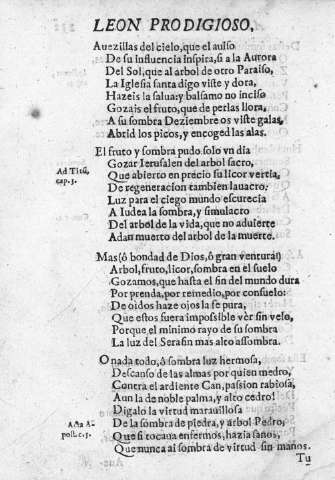 LEON PRODIGIOSO,
Auezillas del cielo, que el auiso
De su influencia inspira, si a la Aurora
Del Sol, que al arbol de otro Paraiso,
La Iglesia santa digo viste y dora,
Hazeis la salua: y balsamo no inciso
Gozais el fruto, que de perlas llora,
A su sombra Deziembre os viste galas,
Abrid los picos, y encoged las alas.
El fruto y sombra pudo solo vn dia
Gozar Ierusalen del arbol sacro,
Ad Titū,
Que abierto en precio su licor vertia,
cap. 3.
De regeneracion tambien lauacro:
Luz para el ciego mundo escurecia
A Iudea la sombra, y simulacro
Del arbol de la vida, que no aduierte
Adan muerto del arbol de la muerte.
Mas (ô bondad de Dios, ô gran ventura)
Arbol, fruto, licor, sombra en el suelo
Gozamos, que hasta el fin del mundo dura
Por prenda, por remedio, por consuelo:
De oidos haze ojos la fe pura,
Que estos fuera impossible vèr sin velo,
Porque el minimo rayo de su sombra
La luz del Serafin mas alto assombra.
O nada todo, ô sombra luz hermosa,
Descanso de las almas por quien medro,
Contra el ardiente Can, passion rabiosa,
Aun la de noble palma, y alto cedro!
Digalo la virtud marauillosa
Acta A-
De la sombra de piedra, y arbol Pedro,
post. c. 5.
Que si tocaua enfermos, hazia sanos,
Que nunca ai sombra de virtud sin manos.
Tu